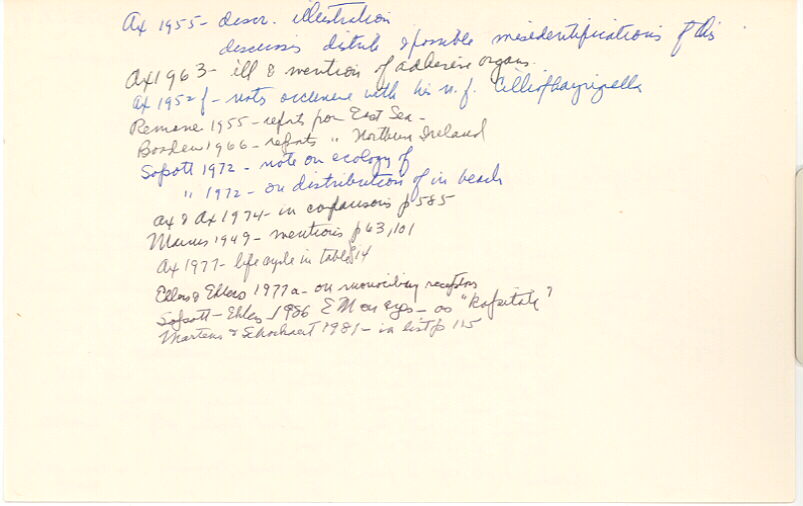 Ax 1955 - descr. illustration
discusses distrib & possible misidentifications of this
Ax 1963 - ill & mention of adhesive organs.
Ax 1952f - notes occurrence with his n. f.
Remane 1955 - reports from East Sea -
Boaden 1966 - reports " Northern Ireland
Sopott 1972 - note on ecology of
" 1972 - on distribution of in beach
Ax & Ax 1974 - in comparisons p 585
Marcus 1949 - mentions p 63, 101
Ax 1977 - life cycle in table 14
Ehlers & Ehlers 1977a - on monociliary receptors
Sopott-Ehlers 1986 EM on eyes - as "
Martens & Schockaert 1981 - in list p 115